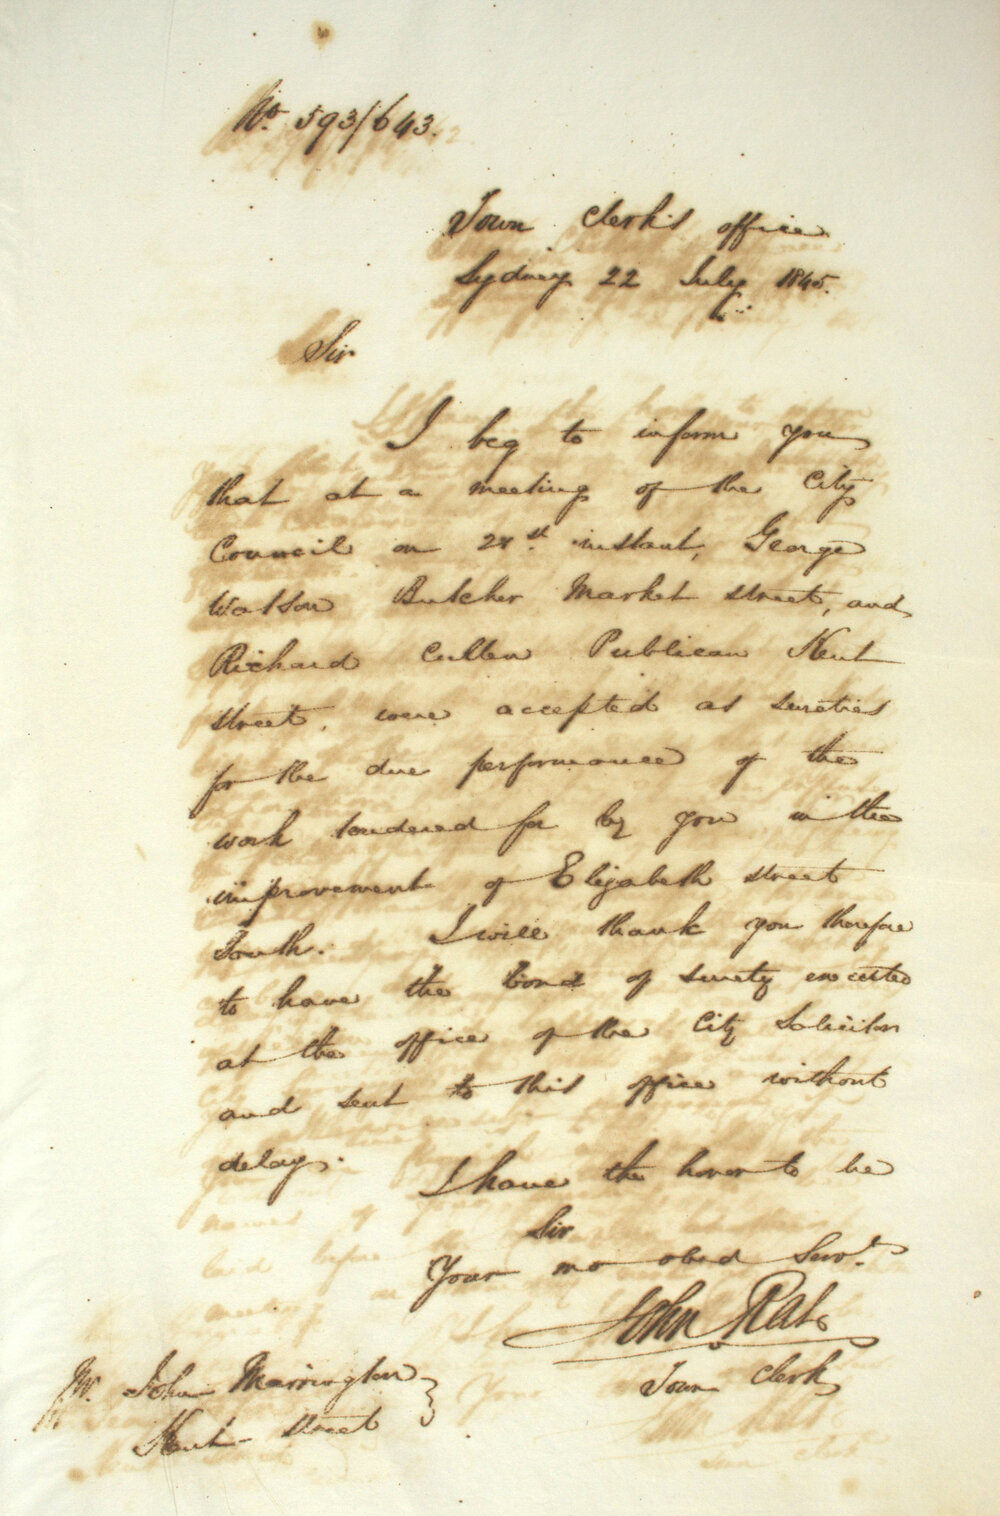 No. 593/643.
Town Clerk's office
Sydney 22 July 1845.
Sir
I beg to inform you
that at a meeting of the City
Council on 21st instant, George
Watson Butcher Market street, and
Richard Cullen Publican Kent
street, were accepted as sureties
for the due performance of the
work tendered for by you in the
improvement of Elizabeth street
South. I will thank you therefore
to have the Bond of surety executed
at the office of the City Solicitor
and sent to this office without
delay.
I have the honor to be
Sir
Your mo obed Servt.
John Rae
Town Clerk
Mr. John Marrington
Kent street